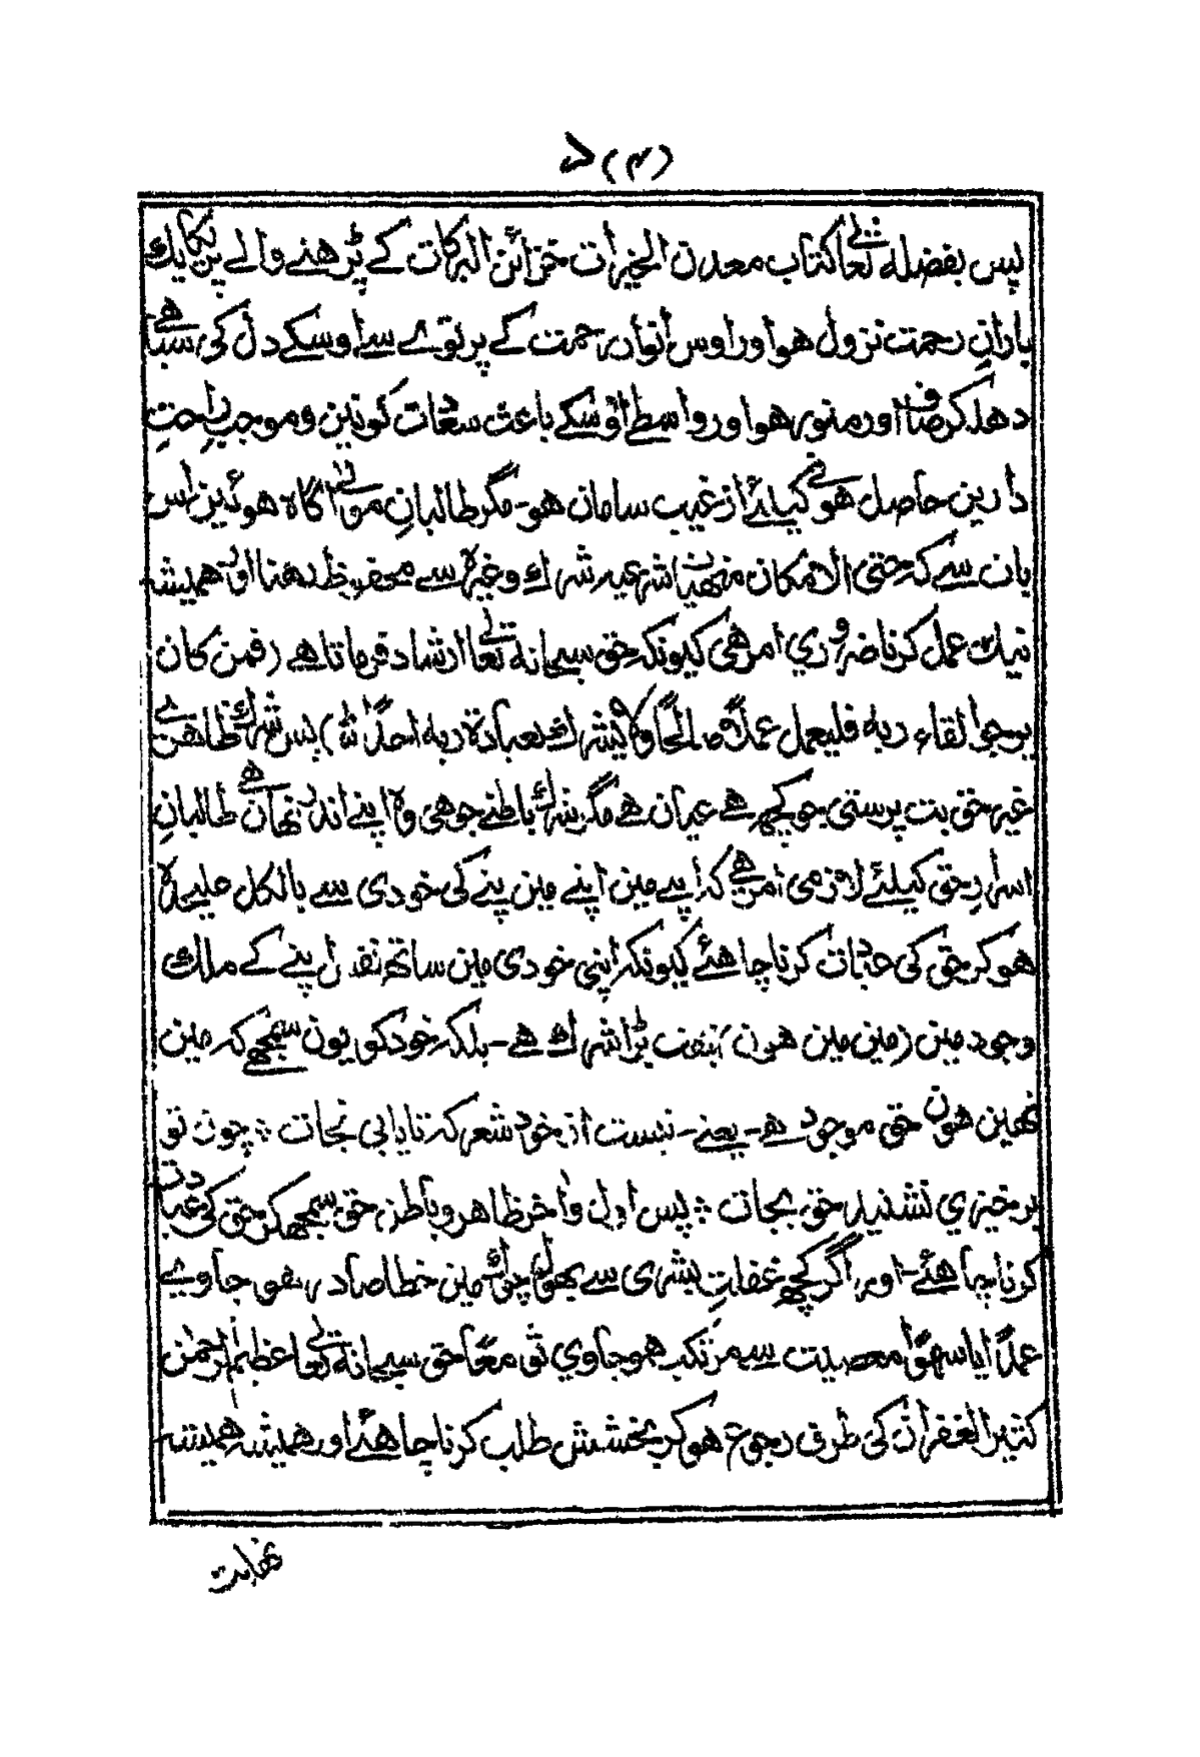 (۴) د
پس بفضلہ تعالیٰ کتاب معدن الخیرات خزائن البرکات کے پڑھنے والے پر یکایک
بارانِ رحمت نزول ہو اور اوس انوار رحمت کے پرتوے سے اوسکے دل کی سیاہی
دھلکر صاف اور منور ہو اور واسطے اوسکے باعث سعادت کونین و موجب راحتِ
دارین حاصل ہونے کیلئے از غیب سامان ہو- مگر طالبانِ مولیٰ آگاہ ہوئین اس
بات سے کہ حتی الامکان منہیات شرعیہ شرک وغیرہ سے محفوظ رہنا اور ہمیشہ
نیک عمل کرنا ضروری امر ھی کیونکہ حق سبحانہ تعالیٰ ارشاد فرماتا ہے (فمن کان
یرجوا لقاء ربہ فلیعمل عملًا صالحًا ولا یشرک بعبادۃ ربہ احدًا) پس شرک ظاہری
غیر حق بت پرستی جو کچھ ہے عیان ہے مگر شرک باطنے جو ھی وہ اپنے اندر نہان ہے طالبانِ
اسرارِ حق کیلئے لازمی امر ہے کہ اپسے مین اپنے مین پنے کی خودی سے بالکل علیحدہ
ھو کر حق کی عبادت کرنا چاھئے کیونکہ اپنی خودی مین ساتھ اپنے کے ملک
وجود مین (مین مین ھون) بہت بڑا شرک ھے- بلکہ خود کو یون سمجھے کہ مین
نھین ھون حق موجود ھے- یعنے- نیست از خود شعر کہ تا یابی نجات ؞ چون تو
برخیزی نشنید حق بجات ؞ پس اول و آخر ظاھر و باطن حق سمجھ کر حق کی عبادت
کرنا چاھئے- اور اگر کچھ غفلتِ بشری سے بھول چوک مین خطا صادر ھو جاوے
عمدًا یا سہوًا معصیت سے مرتکب ھو جاوی تو معًا حق سبحانہ تعالیٰ اعظم الرحمٰن
کثیر الغفران کی طرف رجوع ھو کر بخشش طلب کرنا چاھئے اور ھمیشہ ھمیشہ
نھایت